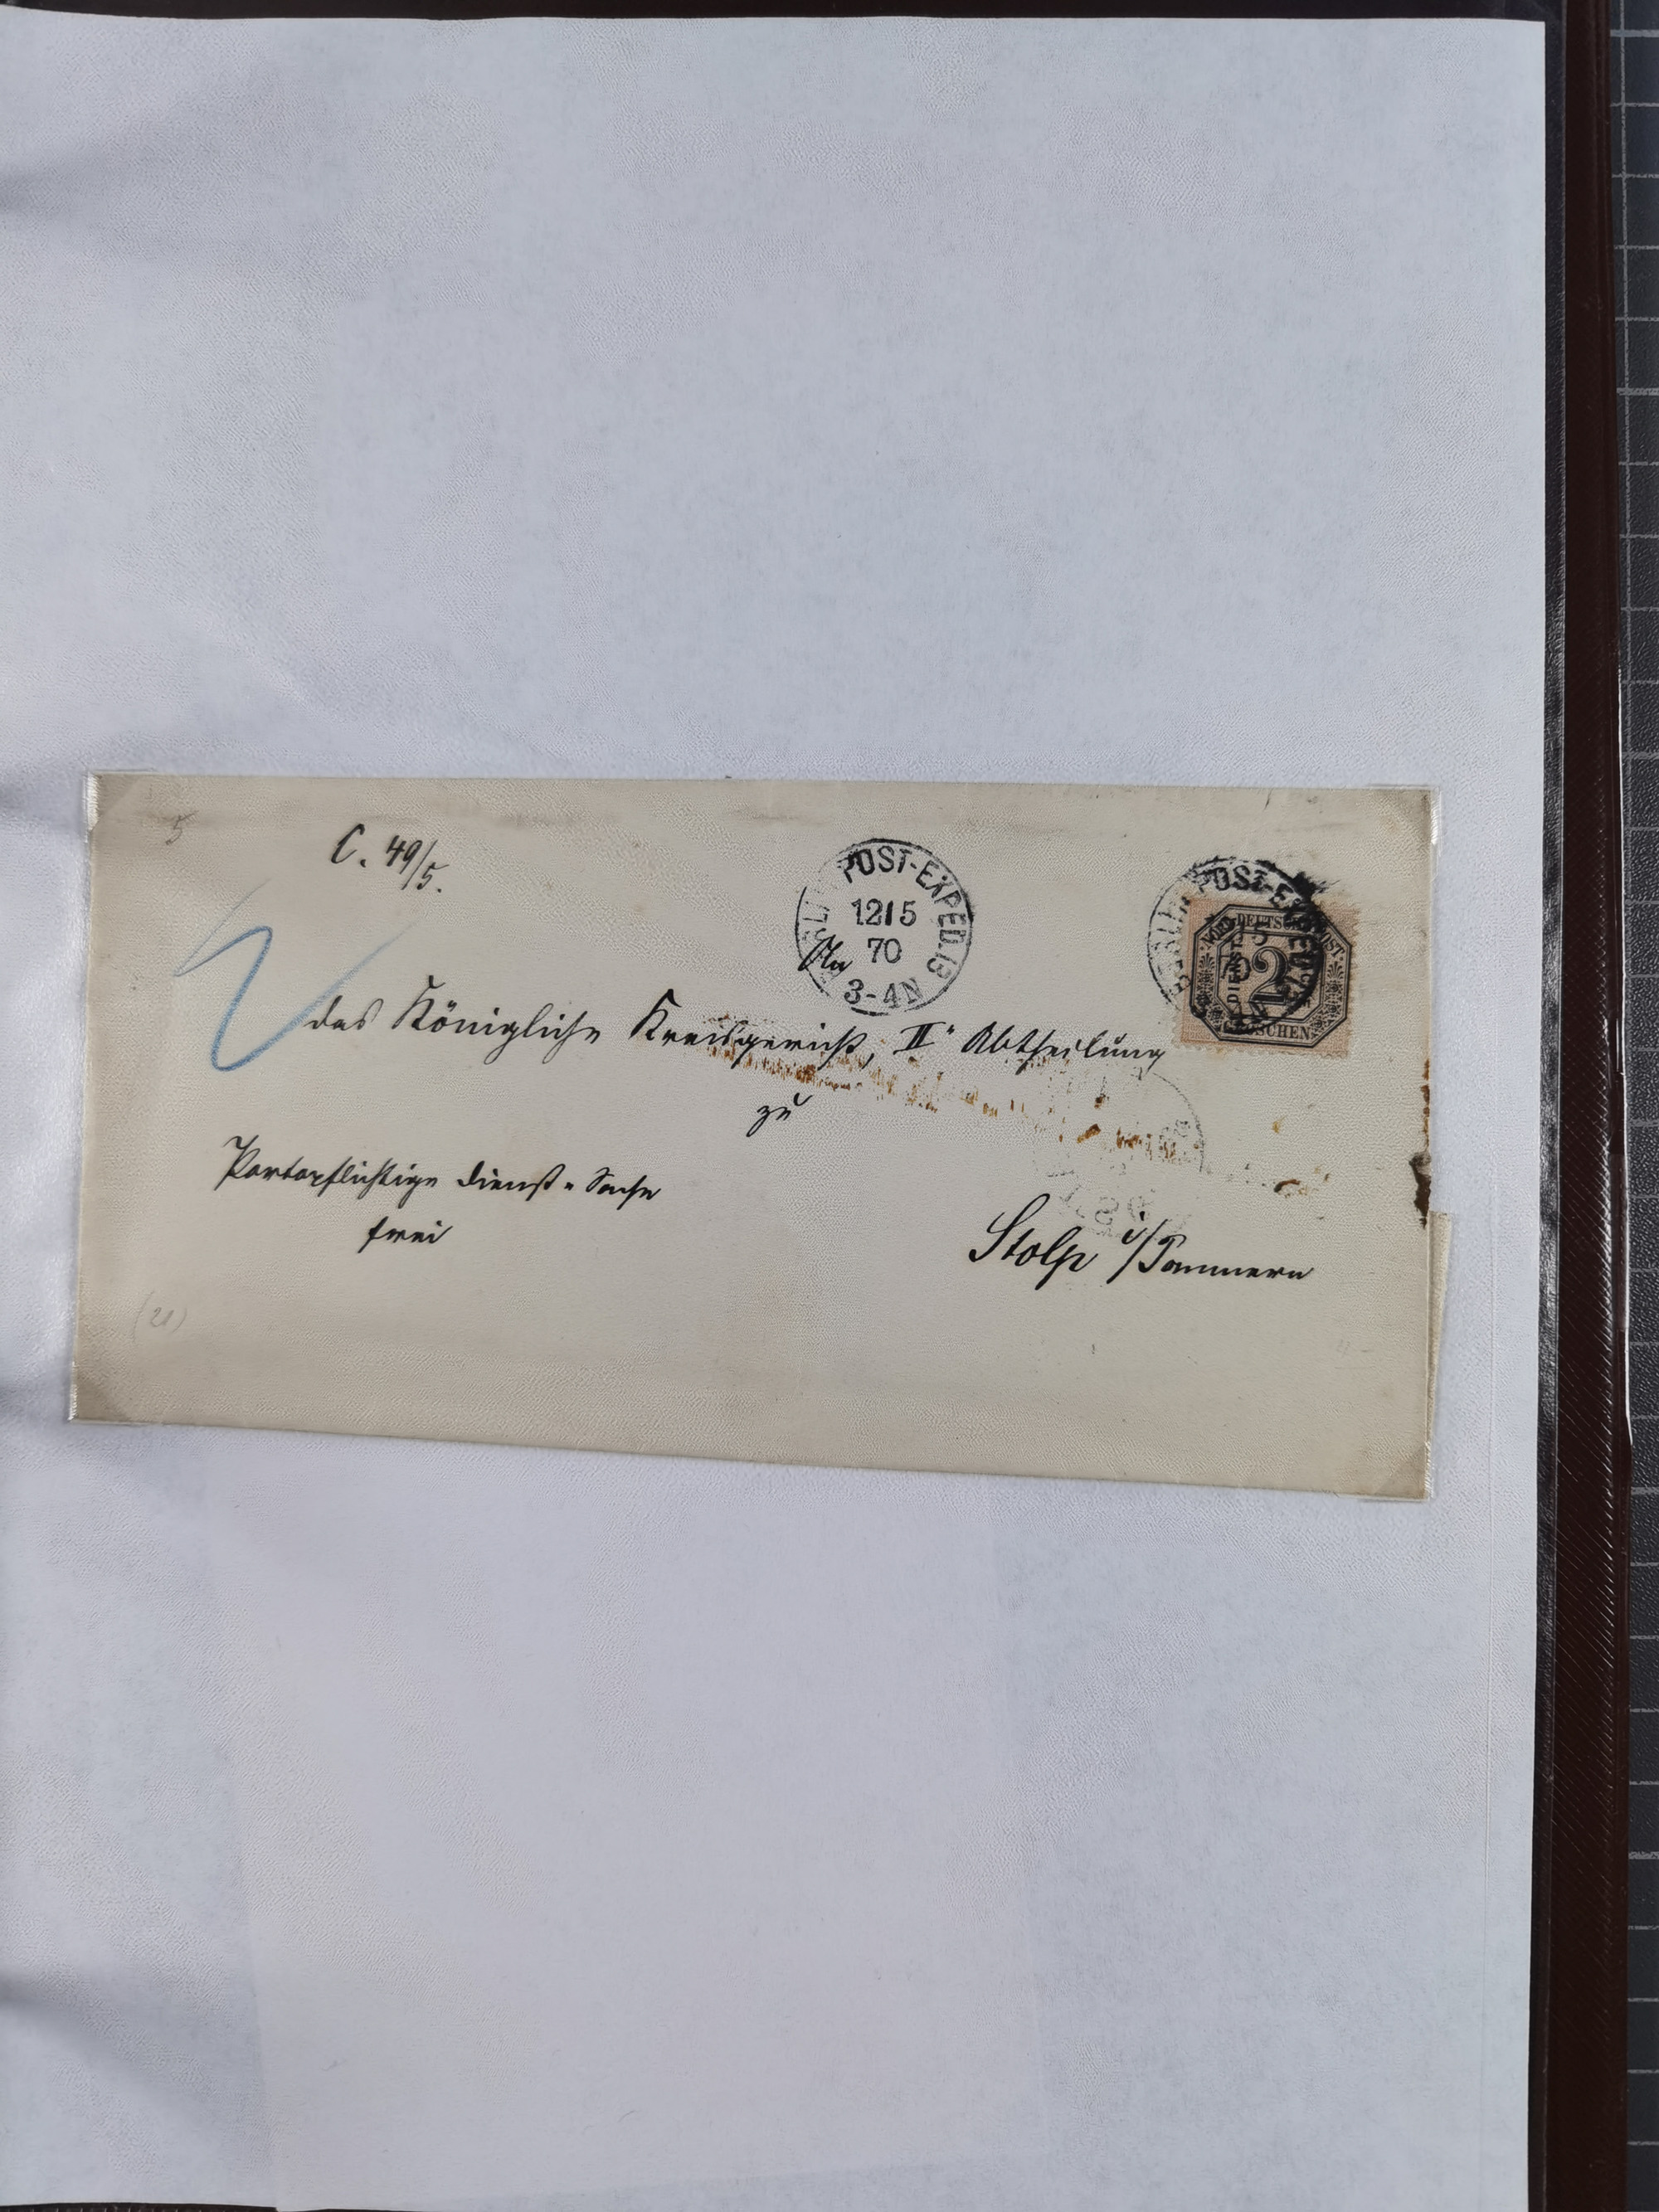 5
C. 49/5.
BERLIN POST-EXPED. 13
12/5
70
3-4N
POST-E
NORDDEUTSCHE POST
DIENST
2
GROSCHEN
An
das Königliche Kreisgericht, II. Abtheilung
zu
Portopflichtige Dienst-Sache
frei
Stolp i/Pommern
(21)